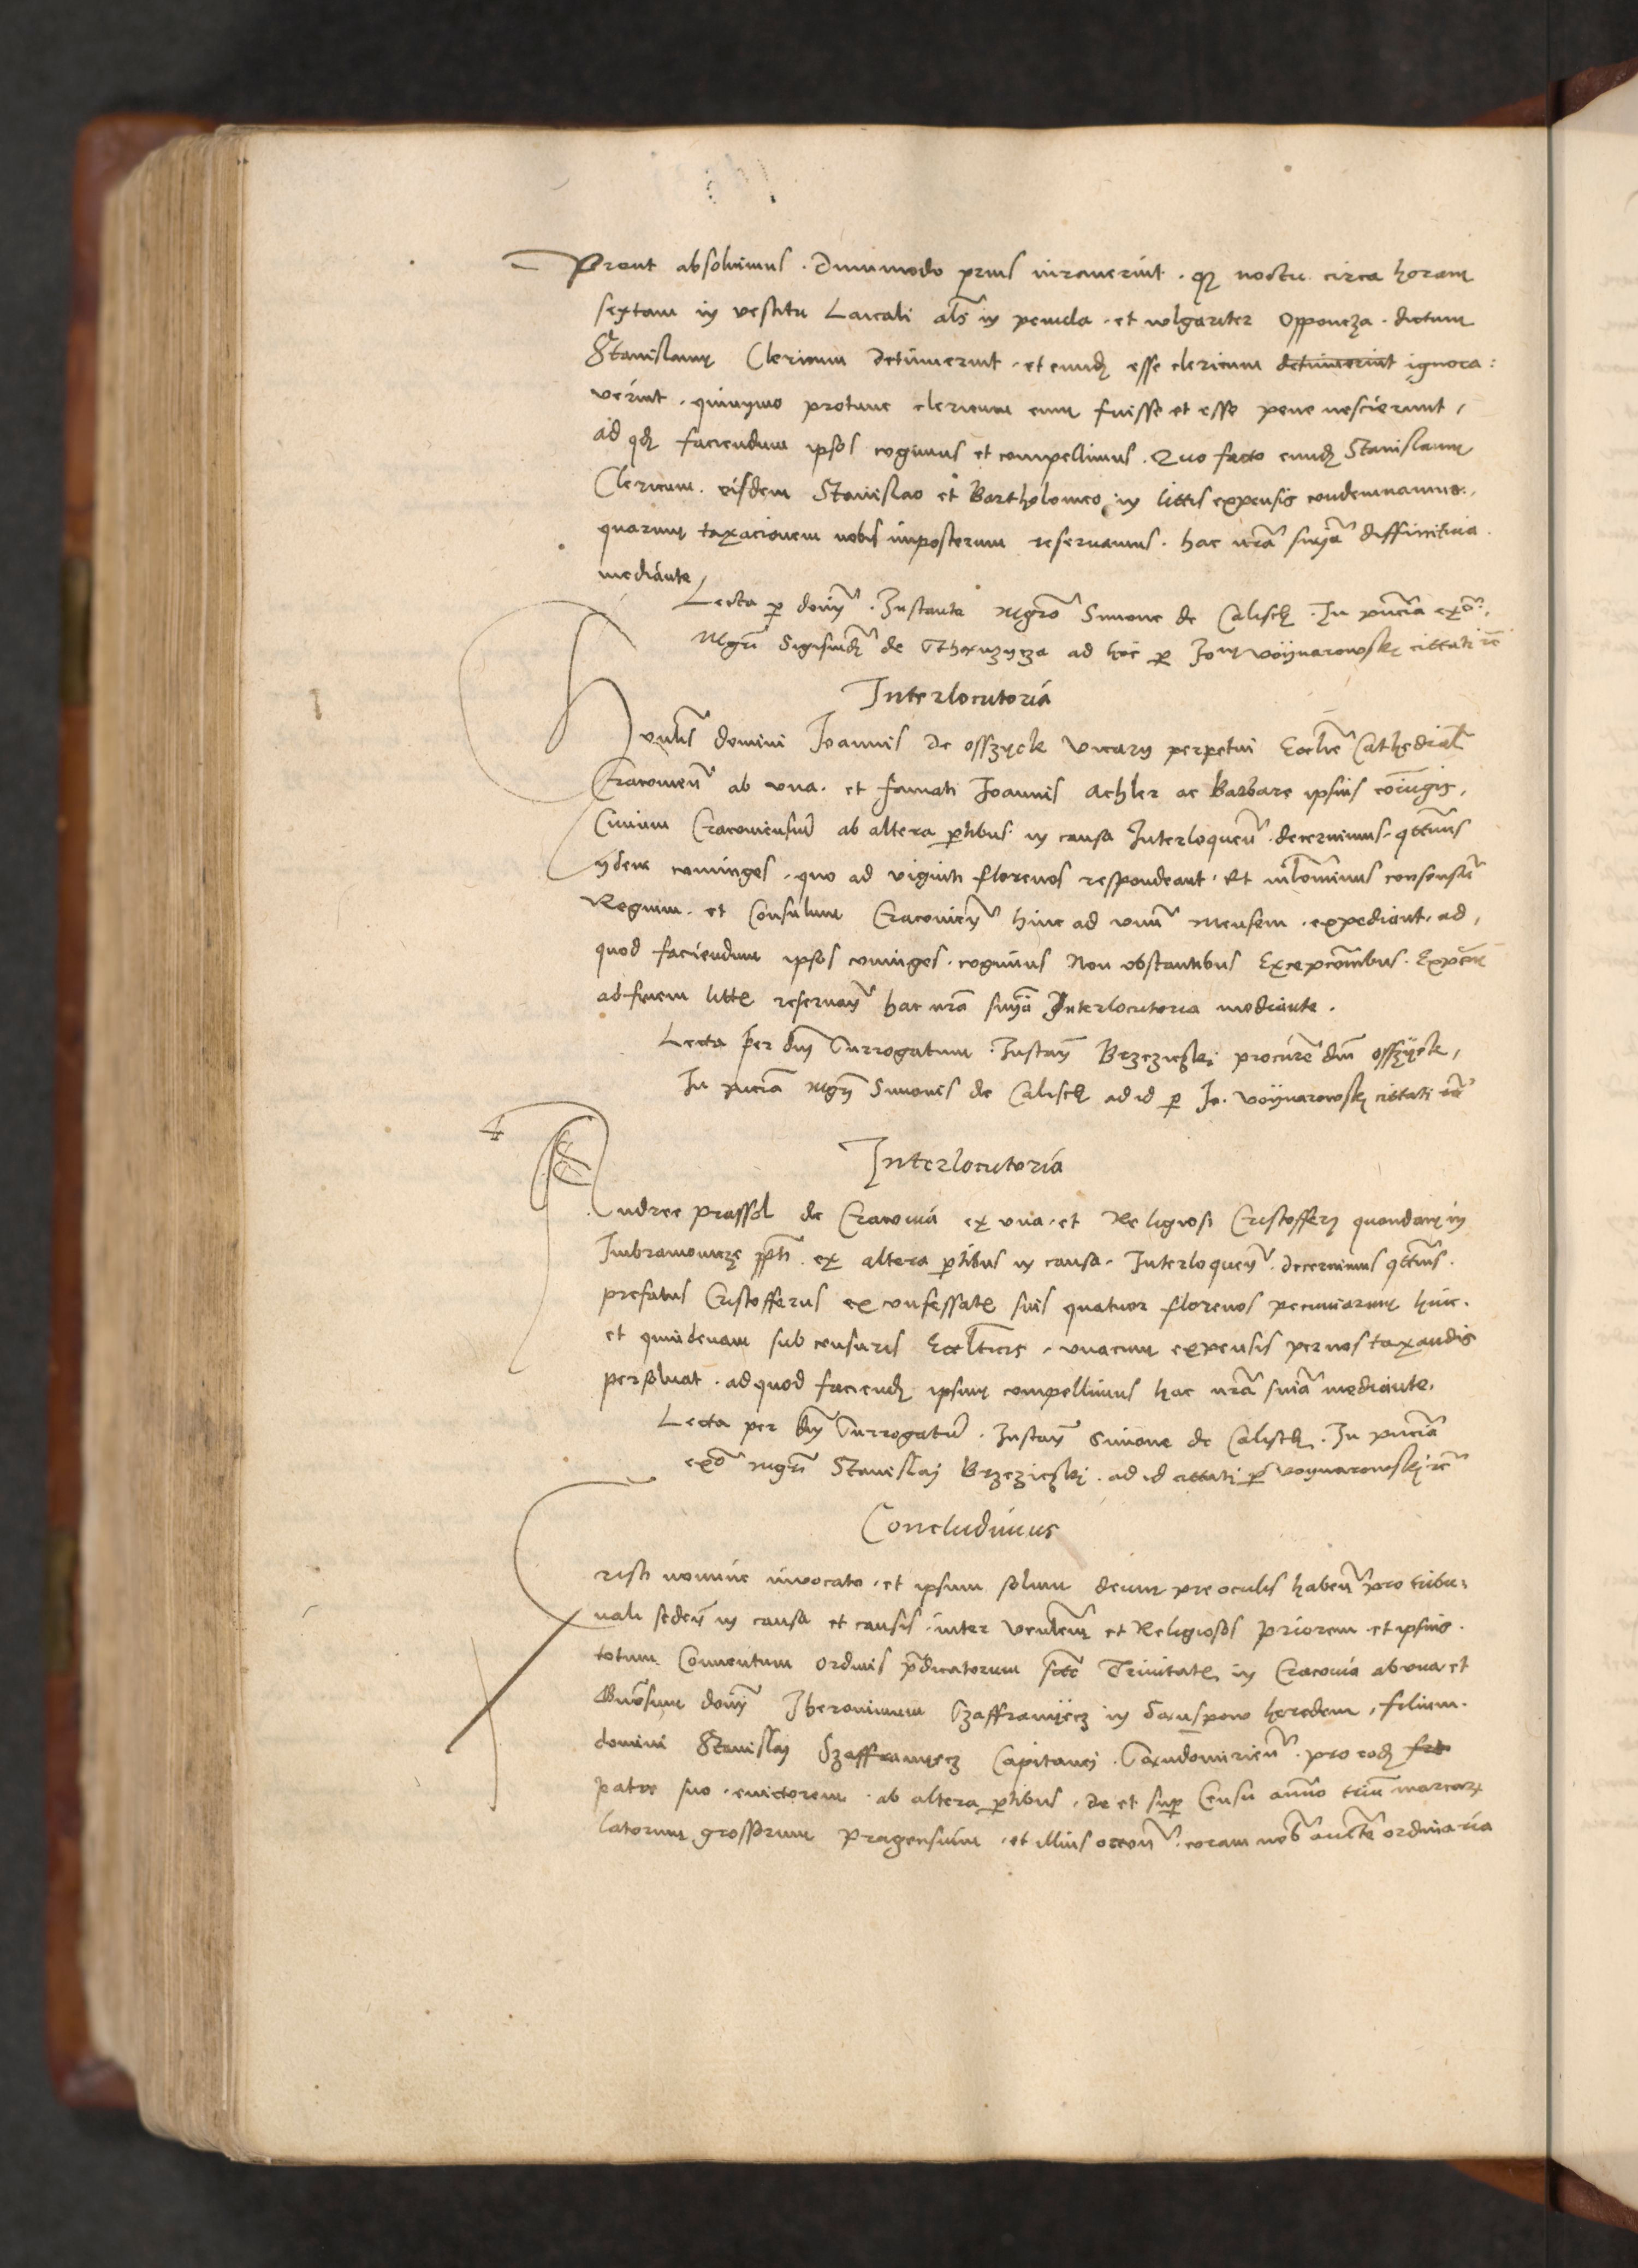 Prout absoluimus . Dummodo prius iuraverint . qz noctu circa horam
sextam in vestitu Laicali als in penula . et wlgariter Opponcza . dictum
Stanislaum Clericum detinuerint . et eundem esse clericum detinuerint ignora:
verint . quinymo protunc clericum eum fuisse et esse pene nescierunt ,
ad qd faciendum ipsos cogimus et compellimus . Quo facto eundem Stanislaum
Clericum . eisdem Stanislao et Bartholomeo in littis expensis condemnamus .
quarum taxacionem nobis imposterum reservamus . hac nra snia diffinitiva .
mediante ,
Lecta p dnm . Instante Mgro Simone de Calisch . In pncia
Mgri Sigismdi de ad hoc p Jo Woynarowsky cittati
Interlocutoria
domini Joannis de Osszyck vicarij perpetui Ecclie Cathedral
Cracovien ab una . et famati Joannis Aehler ac Barbare ipsius coniugis ,
Civium Cracoviensium ab altera ptibus in causa Interloquen . decernimus . qttnus
ijdem coniuges . quo ad viginti florenos respondeant . Et nlominus consensu
Regium . et Consulum Cracovien hinc ad unum mensem . expediant . ad ,
quod faciendum ipsos coniuges . cogimus Non obstantibus Excepconibus . Expens
ad finem litt reservan hac nra snia Interlocutoria mediante .
Lecta per dnm Surrogatum . Instan Brzezinski procure dni Osszyck ,
In pncia Mgri Simonis de Calisch ad id p Jo . Woynarowsky cittati
4
Interlocutoria
Andree Prassol de Cracovia ex una . et Religiosi Cristofferi quondam in
ppti . ex altera ptibus in causa . Interloquen . decernimus qttnus .
prefatus Cristofferus ex confessat suis quatuor florenos pecuniarum hinc .
et quindenam sub censuris Eccliticis . unacum expensis per nos taxandis
persolvat . ad quod faciend ipsum compellimus hac nra snia mediante .
Lecta per dnm Surrogatum . Instan Simone de Calisch . In pncia
Mgri Stanislai Brzezinski . ad id cittati p Woynarowsky
Concludimus
risti nomine invocato . et ipsum solum deum pre oculis haben pro tribu:
nali seden in causa et causis . inter Venlem et Religiosos Priorem . et ipsius .
totum Conventum ordinis pdicatorum scte Trinitat in Cracovia ab una et
Gnrosum dnm Jheronimum Szafframyecz in heredem , filium .
domini Stanislaj Szafframyecz Capitanei . Sandomirien . pro eod
patre suo . evictorem . ab altera ptibus . de et sup Censu annuo trium marcar
latorum grossorum Pragensium . et illius . coram nob aucte ordinaria